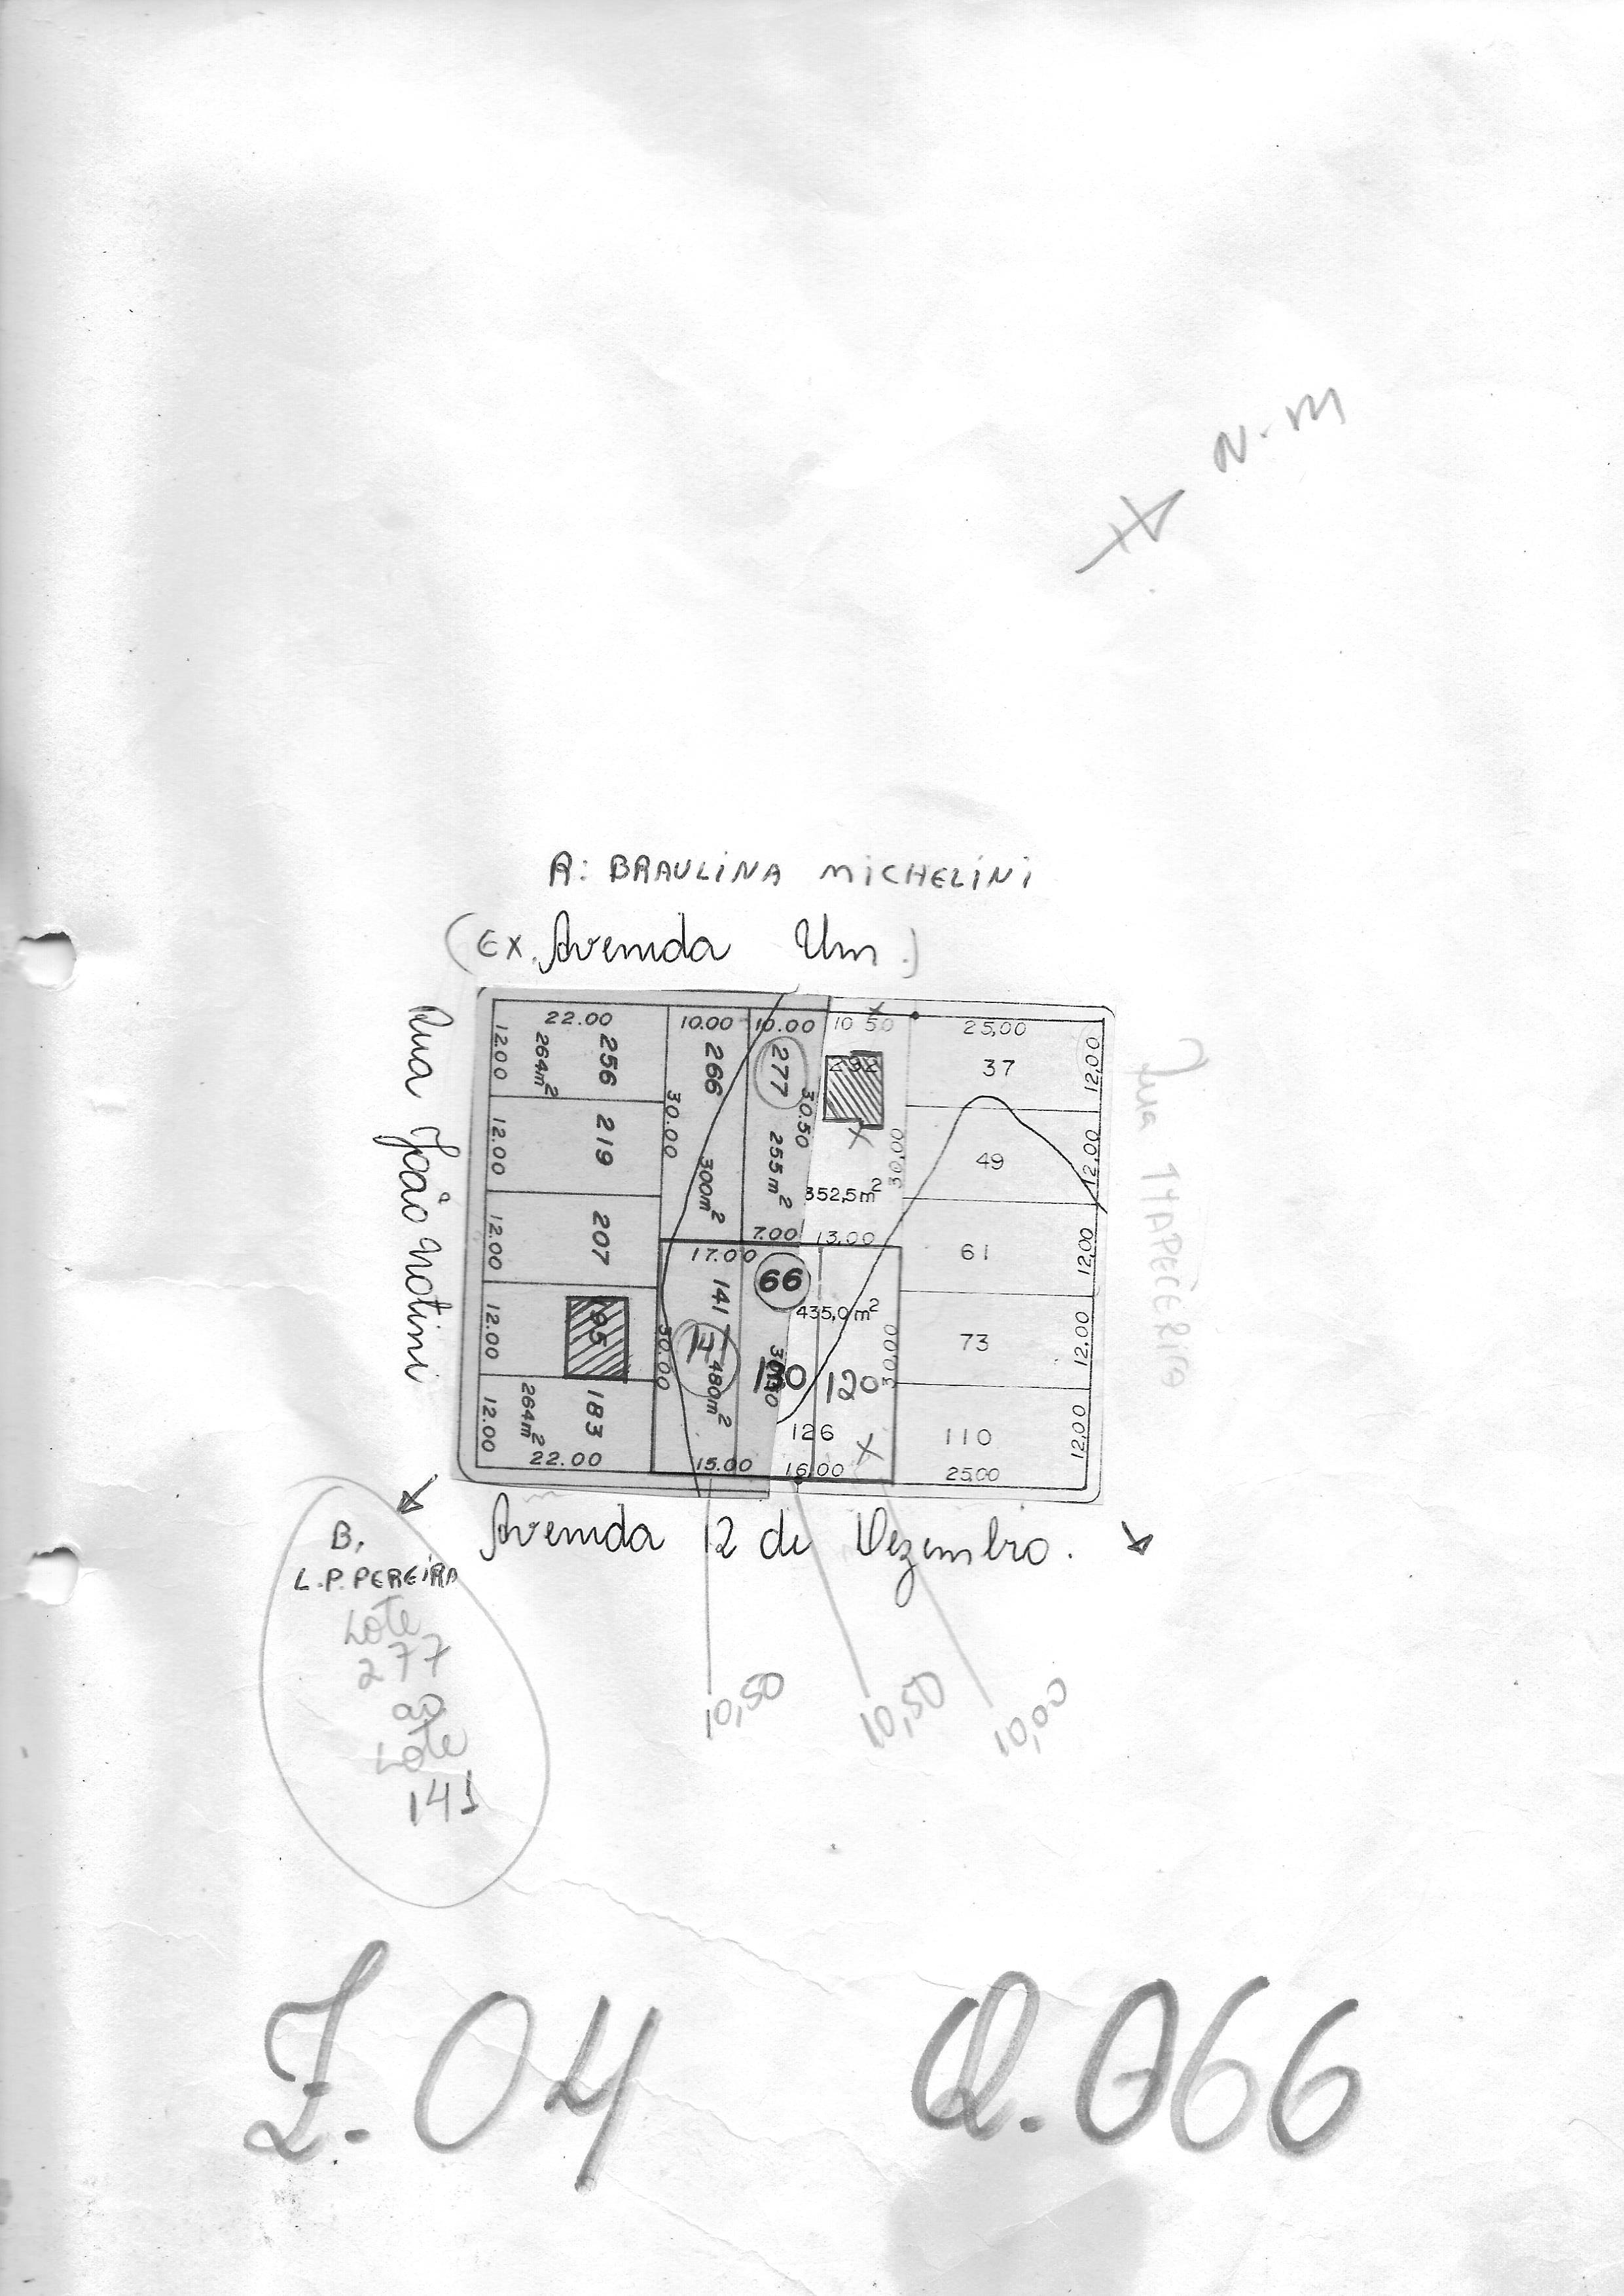 N.M
R: BRAULINA MICHELINI
(EX. Avenida Um.)
Rua João Notini
Rua ITAPECERICA
22.00
10.00
10.00
10 50
25,00
12.00
264m²
256
266
277
292
37
12,00
30.00
30.50
12.00
219
300m²
255m²
352,5m²
30,00
49
12,00
12.00
207
7.00
13.00
61
12,00
17.00
66
141
435,0m²
12.00
195
30.00
141
480m²
130
120
30,00
73
12,00
12.00
264m²
183
126
110
12,00
22.00
15.00
16,00
25,00
Avenida 12 de Dezembro.
B.
L.P. PEREIRA
Lote
277
ao
Lote
141
10,50
10,50
10,00
Z.04
Q.066